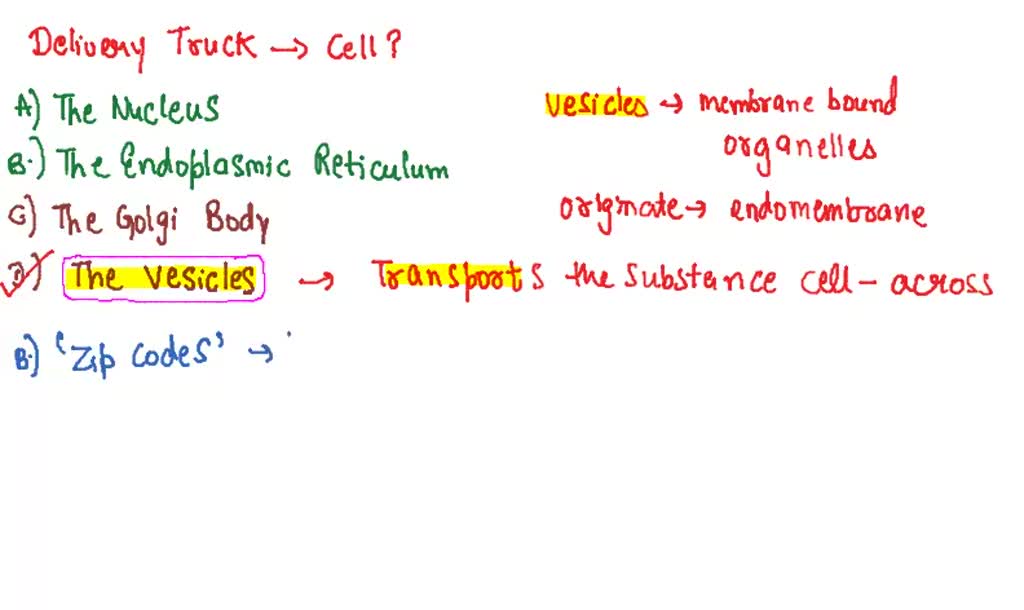 Delivery Truck → Cell?
A) The Nucleus
B.) The Endoplasmic Reticulum
C) The Golgi Body
D) The Vesicles → Transports the substance cell - across
Vesicles → membrane bound
organelles
originate → endomembrane
B.) 'Zip codes' →